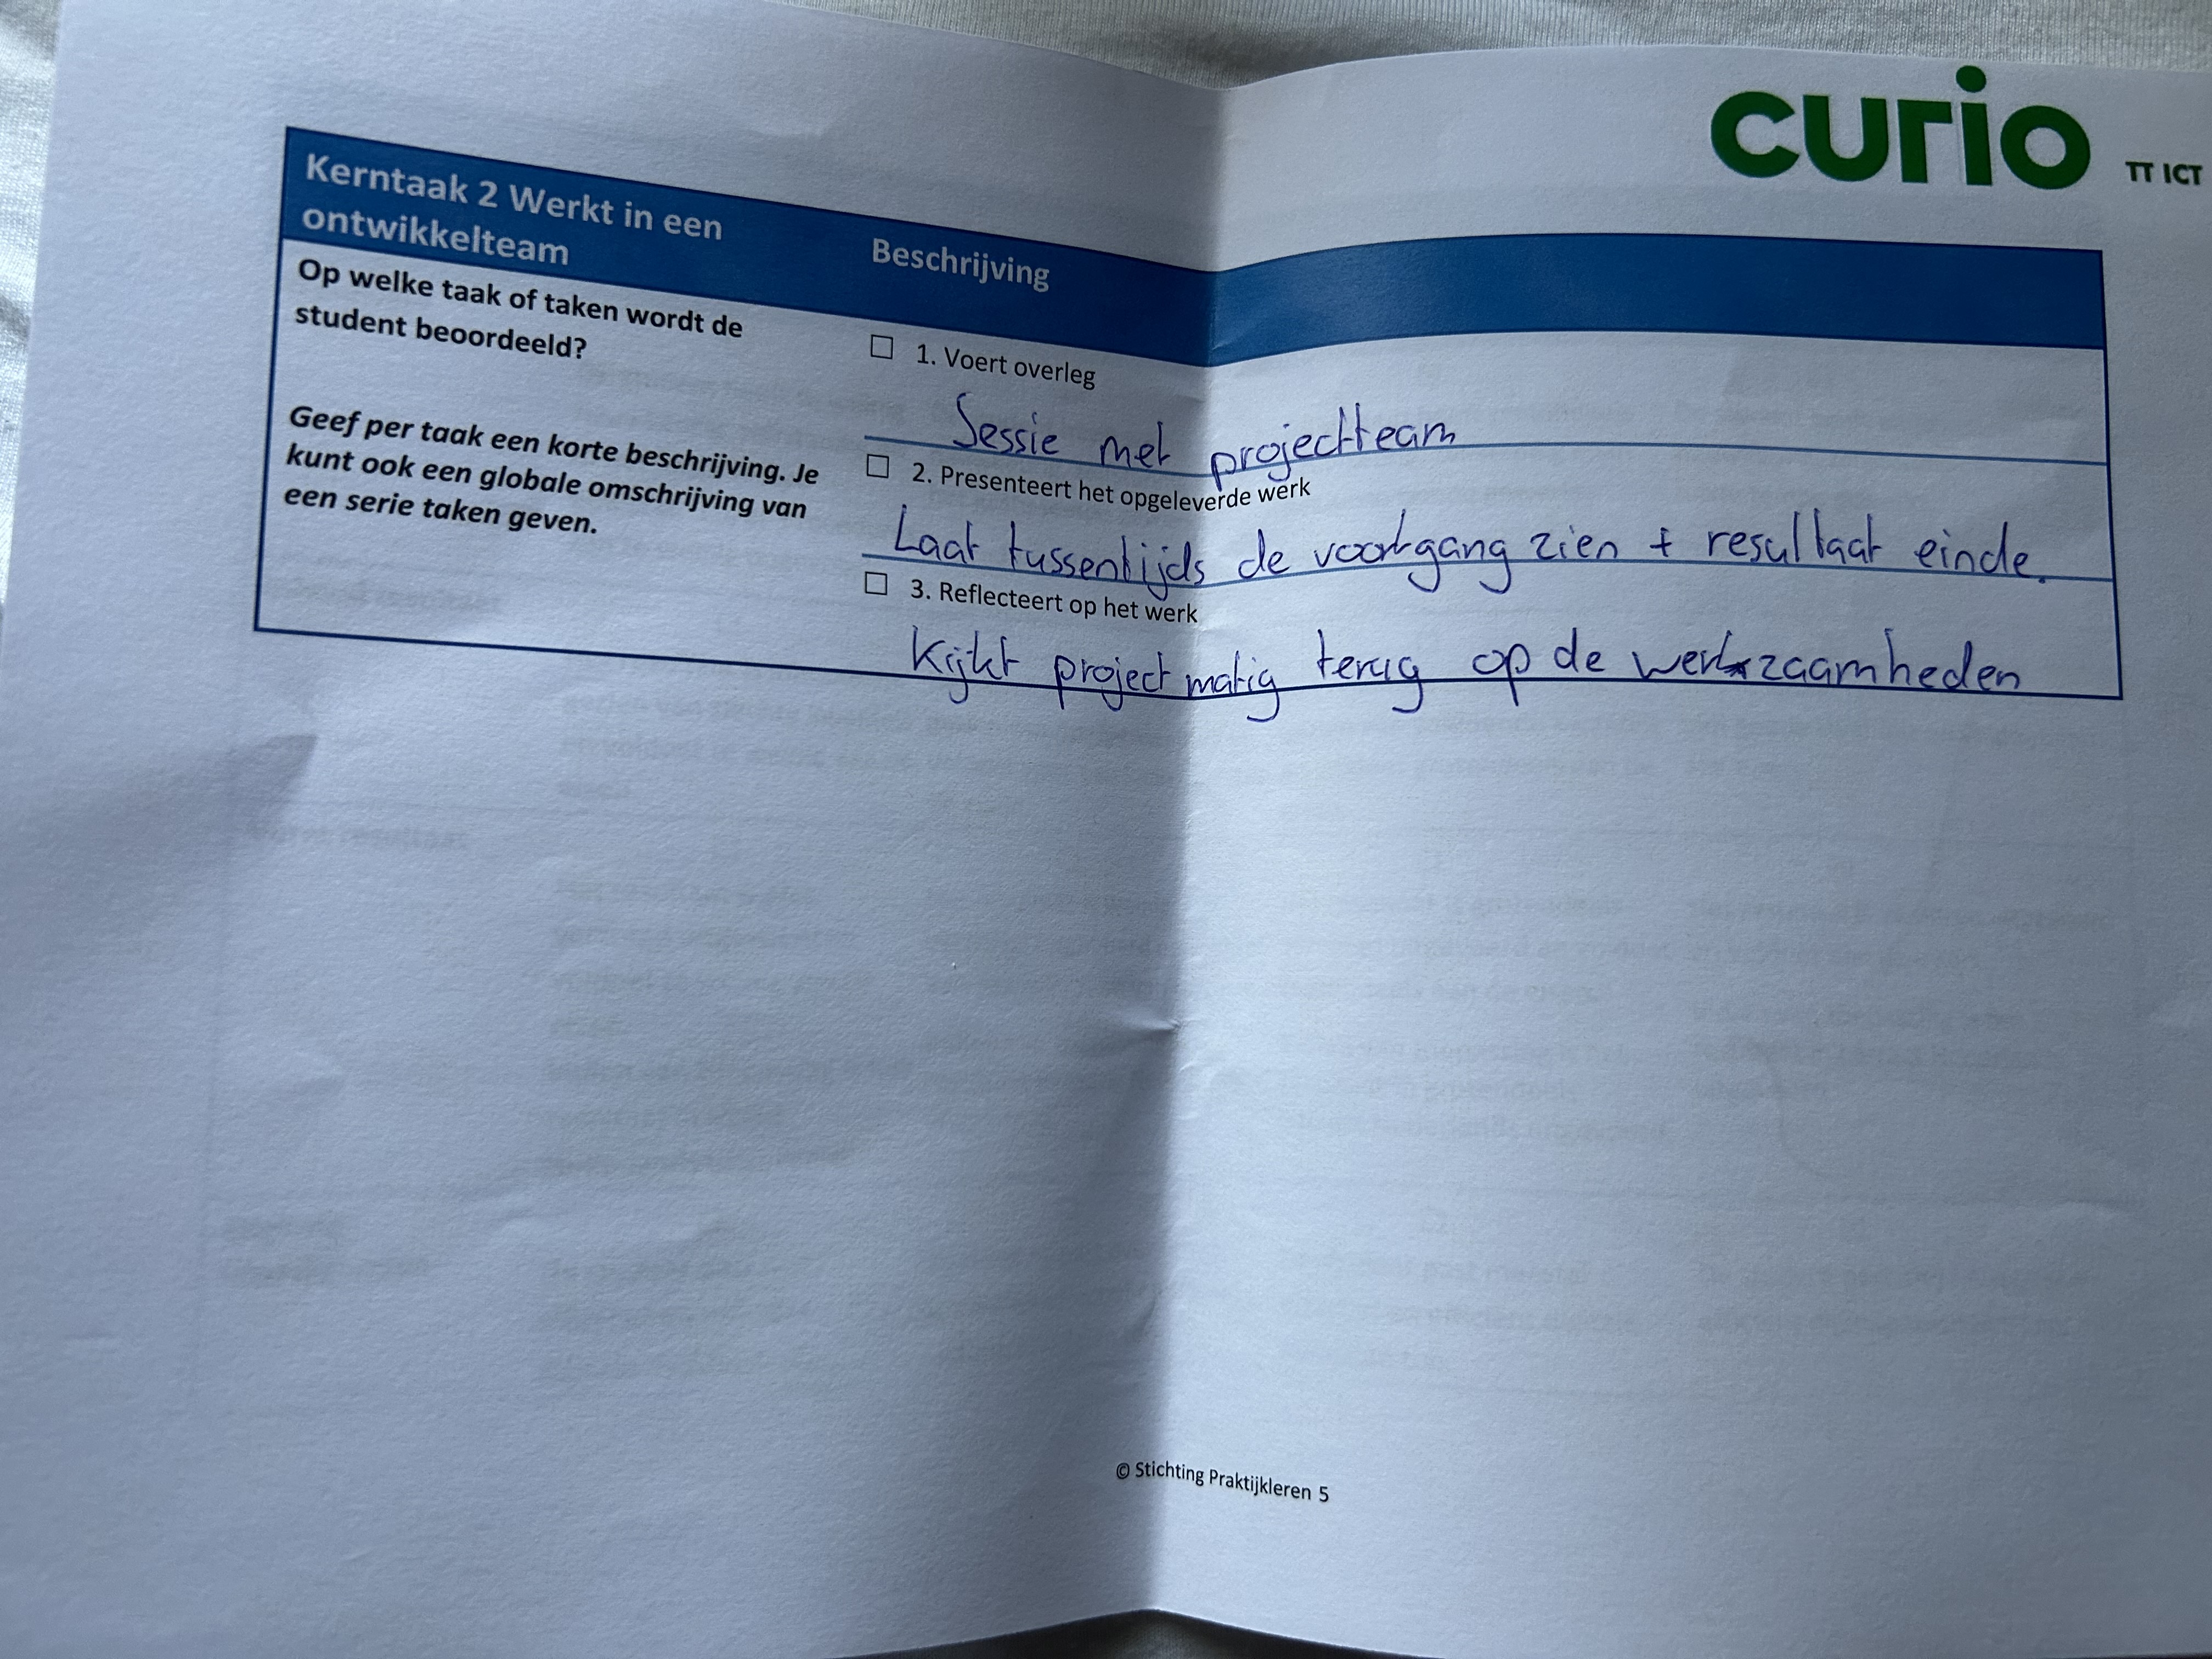 curio TT ICT
Kerntaak 2 Werkt in een
ontwikkelteam
Beschrijving
Op welke taak of taken wordt de
student beoordeeld?
Geef per taak een korte beschrijving. Je
kunt ook een globale omschrijving van
een serie taken geven.
☐ 1. Voert overleg
Sessie met projectteam
☐ 2. Presenteert het opgeleverde werk
Laat tussentijds de voortgang zien + resultaat einde.
☐ 3. Reflecteert op het werk
Kijkt projectmatig terug op de werkzaamheden
© Stichting Praktijkleren 5